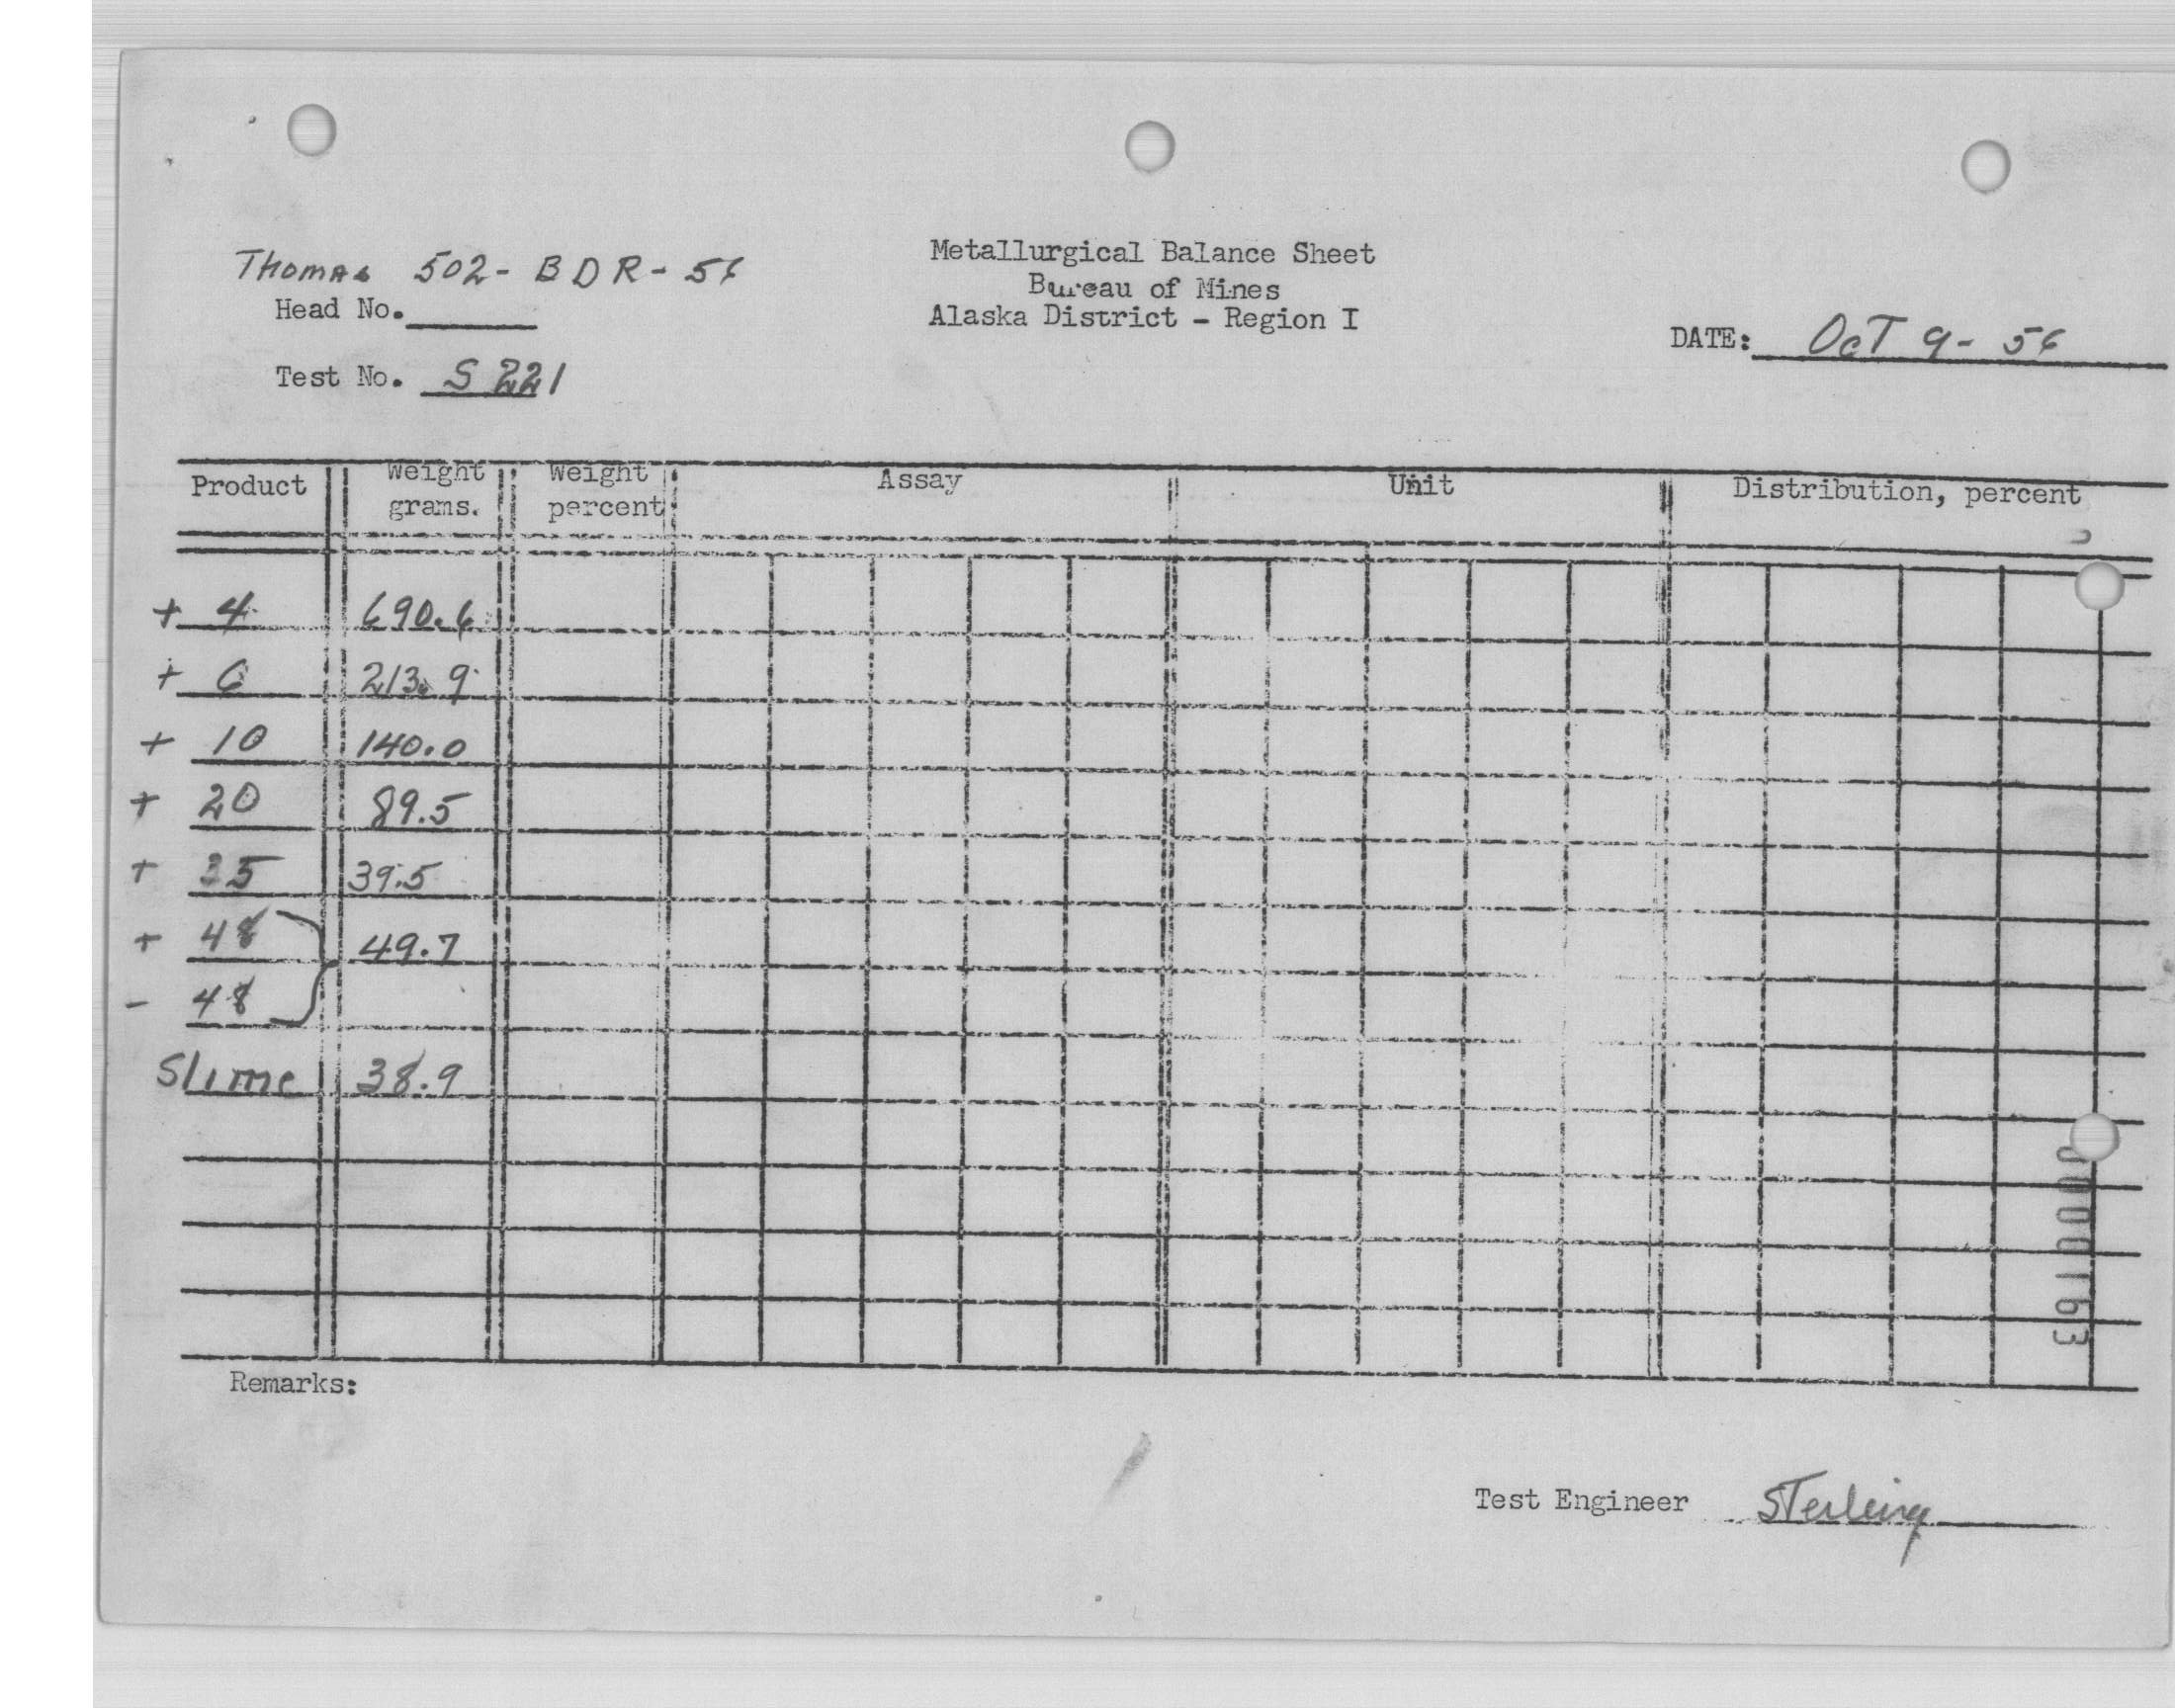 Thomas 502-BDR-56
Metallurgical Balance Sheet
Bureau of Mines
Alaska District - Region I
Head No.
DATE: Oct 9-56
Test No. S 221
Product Weight grams. Weight percent Assay Unit Distribution, percent
+ 4 690.6
+ 6 213.9
+ 10 140.0
+ 20 89.5
+ 35 39.5
+ 48 49.7
- 48
Slime 38.9
0000163
Remarks:
Test Engineer Sterling